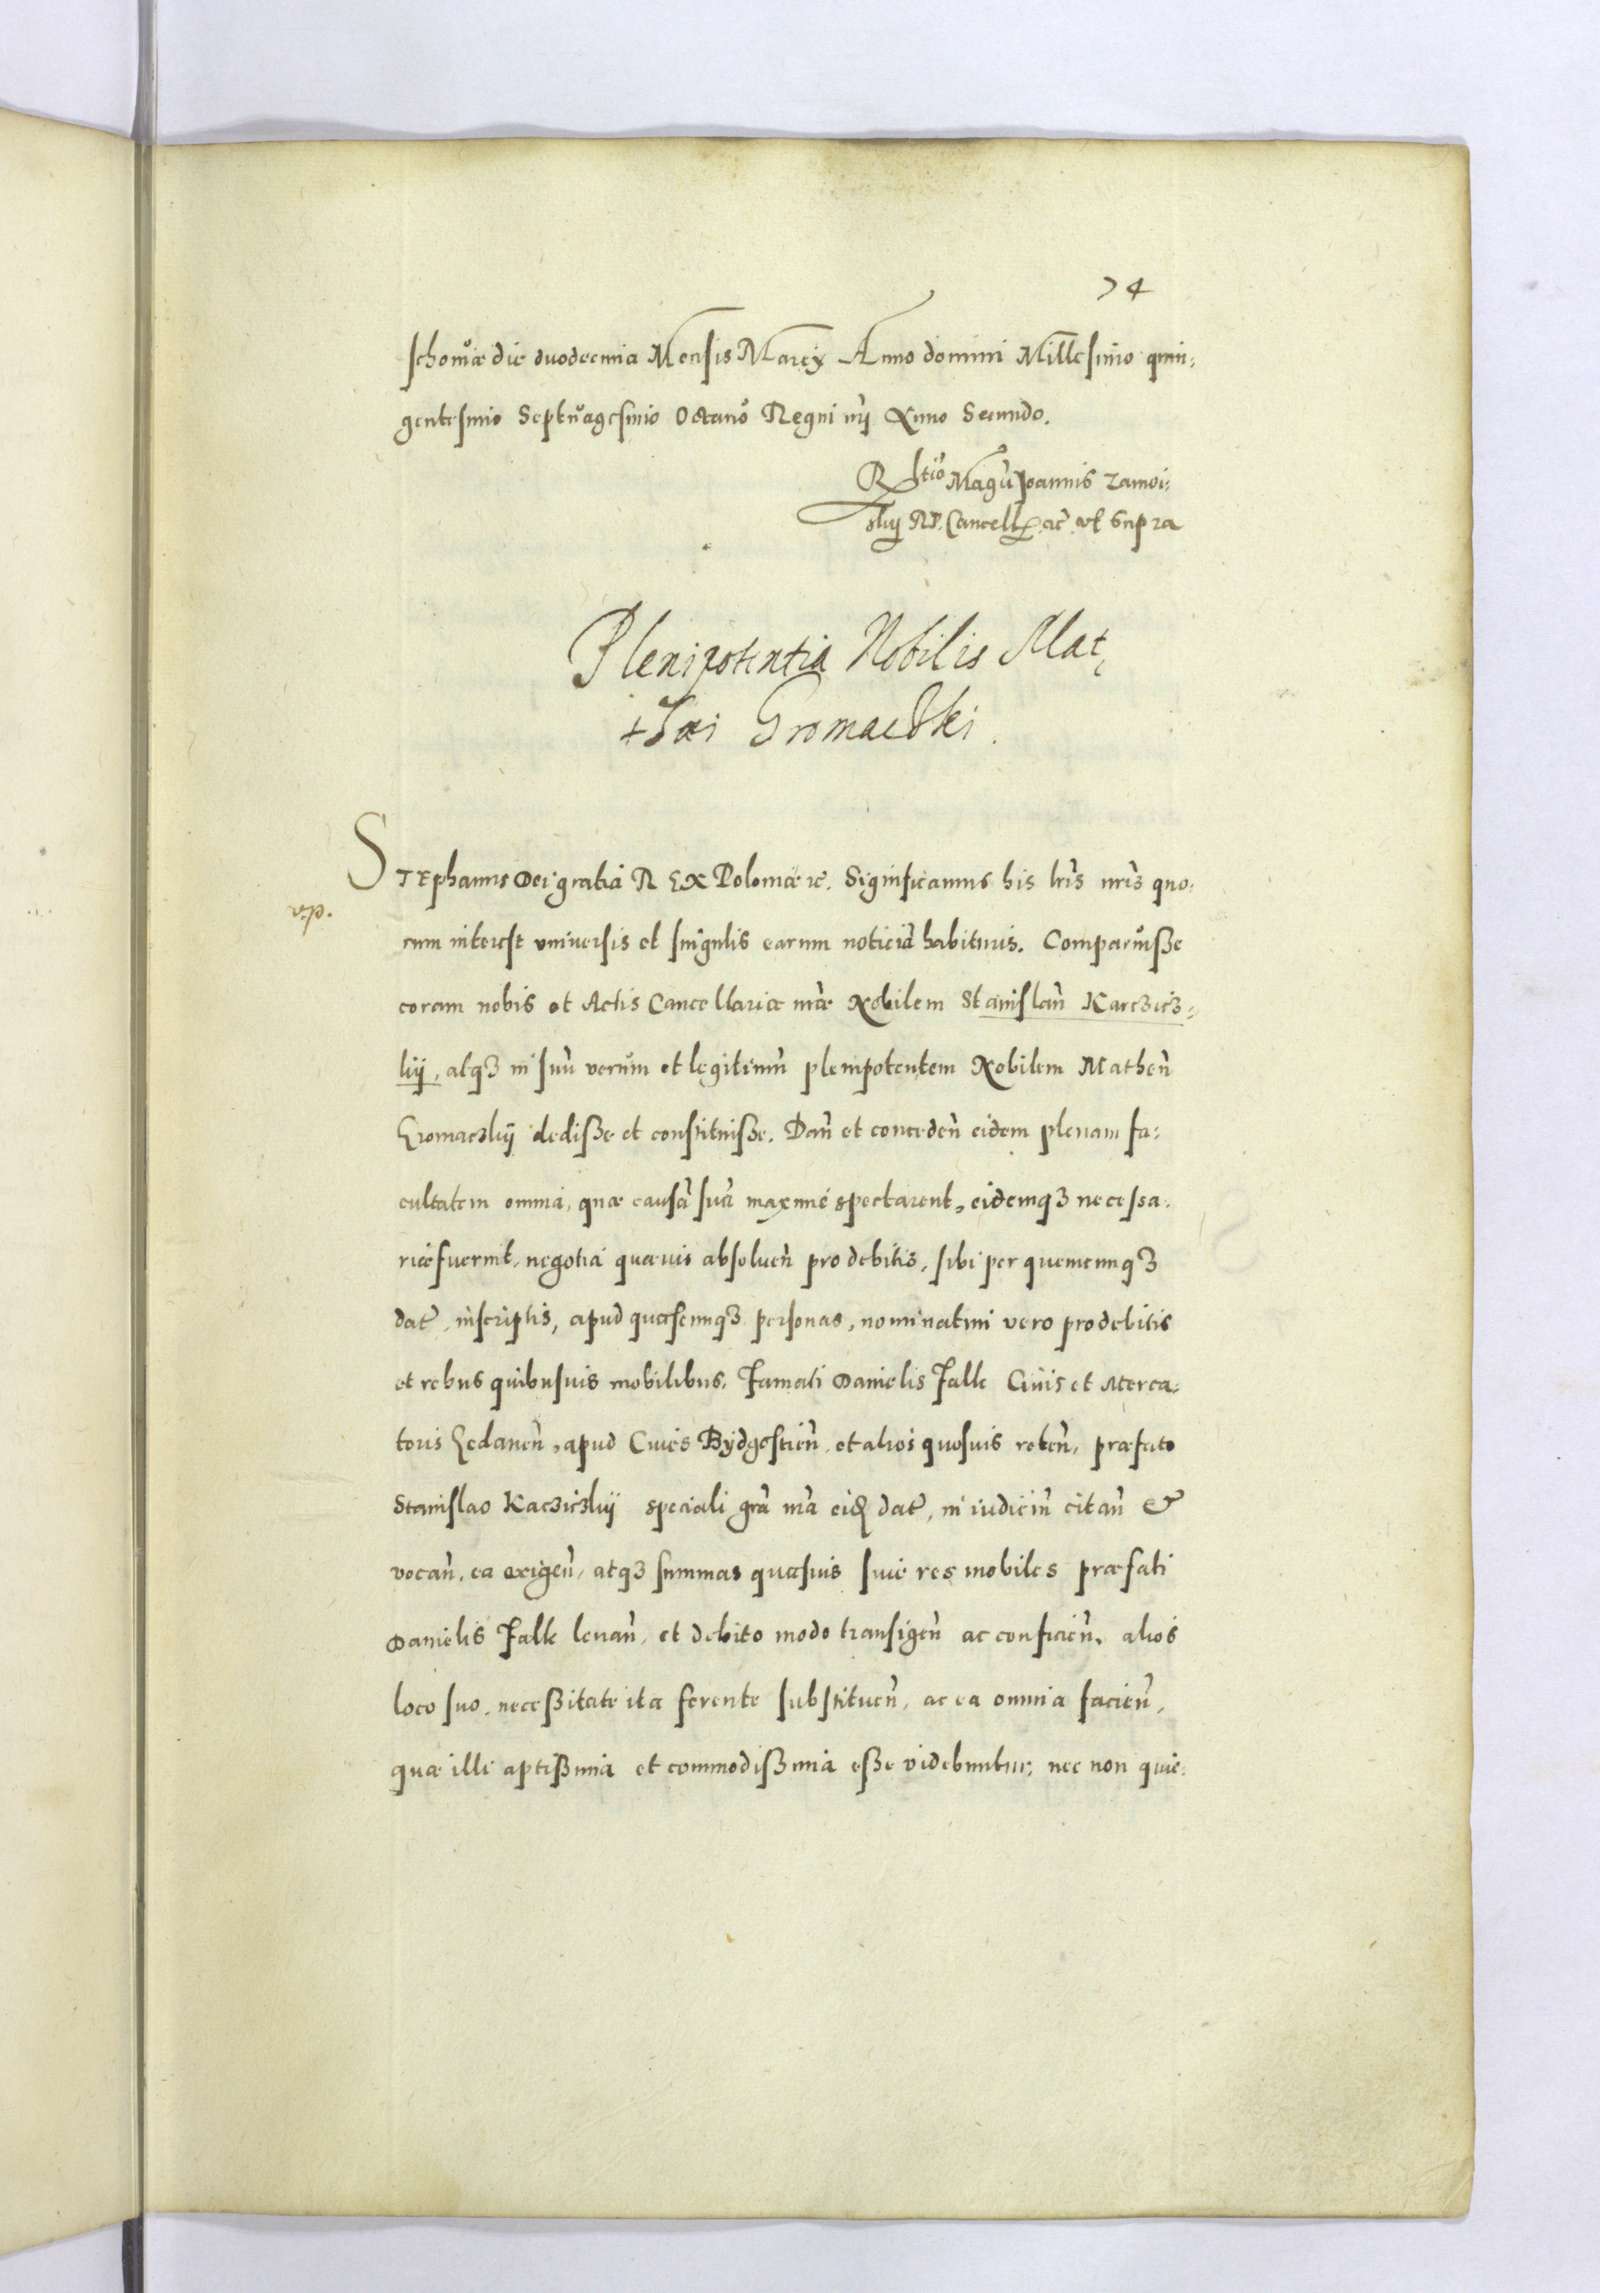 74
schoviæ die duodecima Mensis Marcÿ Anno domini Millesimo quin:
gentesimo Septuagesimo Octavo Regni nrÿ Anno Secundo.
Rltio Magci Joannis Zamoi:
skÿ RP. Cancellr ac vt supra
Plenipotentia Nobilis Mat
thæi Gromaczki.
STEphanus Dei gratia REX Poloniæ rc. Significamus his lris nris quo:
v.p.
rum interest vniversis et singulis earum noticiã habituris. Comparuisse
coram nobis et Actis Cancellariæ nræ Nobilem Stanislaũ Karczicz:
kÿ, atqz in suũ verum et legitimũ plenipotentem Nobilem Matheũ
Gromaczkÿ dedisse et constituisse. Dañ et conceden̄ eidem plenam fa:
cultatem omnia, quæ causã suã maxime spectarent, eidemqz necessa:
ria fuerint, negotia quævis absolven̄ pro debitis, sibi per quemcunqz
dat, inscriptis, apud quascunqz personas, nominatim vero pro debitis
et rebus quibusvis mobilibus, Famati Danielis Falk Civis et Merca:
toris Gedanen̄, apud Cives Bÿdgostien̄ et alios quosvis reten̄, præfato
Stanislao Kacziczkÿ speciali grã nrã eid dat, in iudiciũ citan̄ et
vocan̄, ea exigen̄, atqz summas quasvis sive res mobiles præfati
Danielis Falk levan̄, et debito modo transigen̄ ac conficien̄, alios
loco suo, necessitate ita ferente substituen̄, ac ea omnia facien̄,
quæ illi aptissima et commodissima esse videbuntur, nec non quie: